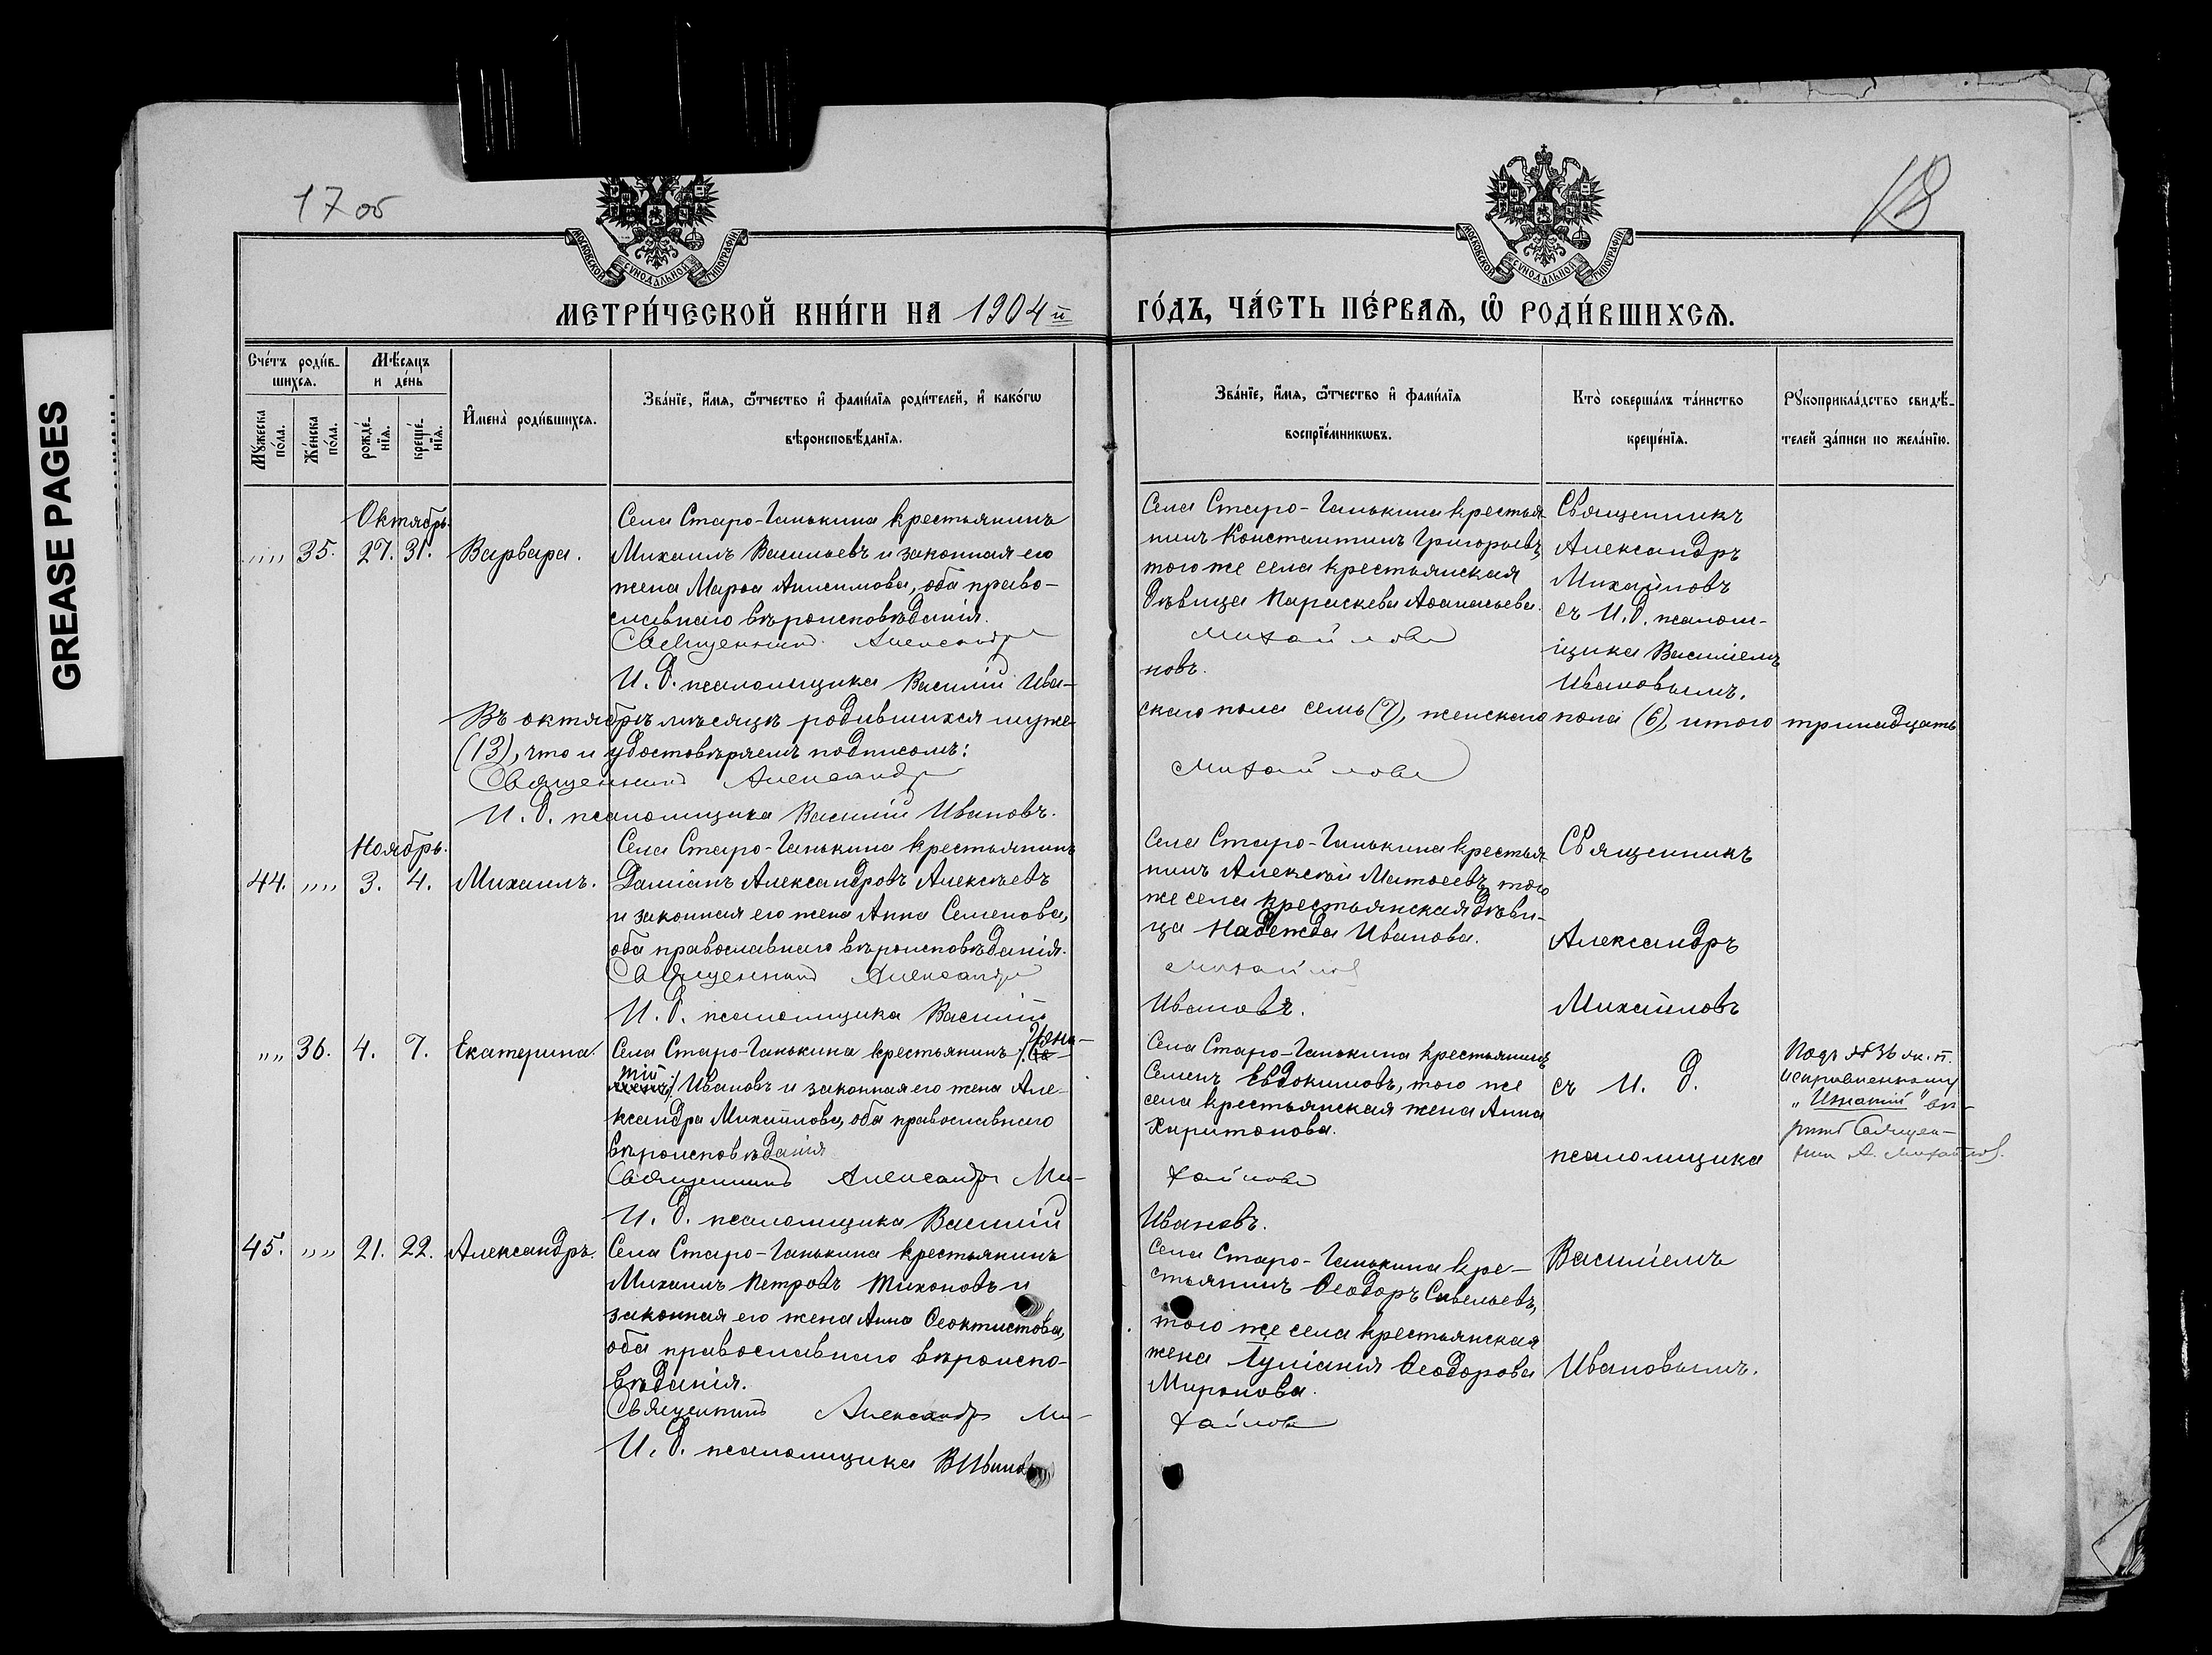 GREASE PAGES
17 об
18
МОСКОВСКОЙ СѴНОДАЛЬНОЙ ТИПОГРАФІИ
МОСКОВСКОЙ СѴНОДАЛЬНОЙ ТИПОГРАФІИ
МЕТРИ́ЧЕСКОЙ КНИ́ГИ НА 1904 й
ГО́ДЪ, ЧА́СТЬ ПЕ́РВАѦ, Ѽ РОДИ́ВШИХСѦ.
Сче́тъ роди́в-
шихсѧ.
Мѣ́сѧцъ
и де́нь
Мꙋ́жеска
по́ла.
Же́нска
по́ла.
рожде́-
нїѧ.
креще́-
нїѧ.
И҆мена̀ роди́вшихсѧ.
Зва́нїе, и҆́мѧ, ѿ́чество и҆ фами́лїѧ роди́телей, и҆ како́гѡ
вѣроисповѣ́данїѧ.
Зва́нїе, и҆́мѧ, ѿ́чество и҆ фами́лїѧ
воспрїе́мникѡвъ.
Кто̀ соверша́лъ та́инство
креще́нїѧ.
Рꙋкоприкла́дство свидѣ́-
телей за́писи по жела́нїю.
Октябрь.
35. 27. 31. Варвара.
Села Старо-Ганькина крестьянинъ
Михаилъ Васильевъ и законная его
жена Марѳа Анисимова, оба право-
славнаго вѣроисповѣданія.
Священникъ Александръ
И. д. псаломщика Василій Ива-
Села Старо-Ганькина крестья-
нинъ Константинъ Григорьевъ,
того же села крестьянская
дѣвица Параскева Аѳанасьева.
Михайловъ
новъ.
Священникъ
Александръ
Михайловъ
съ И. д. псалом-
щика Василіемъ
Ивановымъ.
Въ октябрѣ мѣсяцѣ родившихся муже-
скаго пола семь (7), женскаго пола (6), итого тринадцать
(13), что и удостовѣряемъ подписомъ:
Священникъ Александръ
Михайловъ
И. д. псаломщика Василій Ивановъ.
Ноябрь.
44. 3. 4. Михаилъ.
Села Старо-Ганькина крестьянинъ
Даміанъ Александровъ Алексѣевъ
и законная его жена Анна Семенова,
оба православнаго вѣроисповѣданія.
Священникъ Александръ
И. д. псаломщика Василій
Села Старо-Ганькина крестья-
нинъ Алексѣй Матѳеевъ, того
же села крестьянская дѣви-
ца Надежда Иванова.
Михайловъ
Ивановъ.
Священникъ
Александръ
Михайловъ
36. 4. 7. Екатерина.
Села Старо-Ганькина крестьянинъ Игна-
тій Ивановъ и законная его жена Але-
ксандра Михайлова, оба православнаго
вѣроисповѣданія
Священникъ Александръ Ми-
И. д. псаломщика Василій
Села Старо-Ганькина крестьянинъ
Семенъ Евдокимовъ, того же
села крестьянская жена Анна
Харитонова.
хайловъ
Ивановъ.
съ И. д.
псаломщика
Подъ № 36 ж. п.
исправленному
„Игнатій“ вѣ-
рить Священ-
никъ А. Михайловъ.
45. 21. 22. Александръ.
Села Старо-Ганькина крестьянинъ
Михаилъ Петровъ Тихоновъ и
законная его жена Анна Ѳеоктистова,
оба православнаго вѣроиспо-
вѣданія.
Священникъ Александръ Ми-
И. д. псаломщика В Ивановъ
Села Старо-Ганькина кре-
стьянинъ Ѳеодоръ Савельевъ,
того же села крестьянская
жена Іуліанія Ѳеодорова
Миронова.
хайловъ
Василіемъ
Ивановымъ.